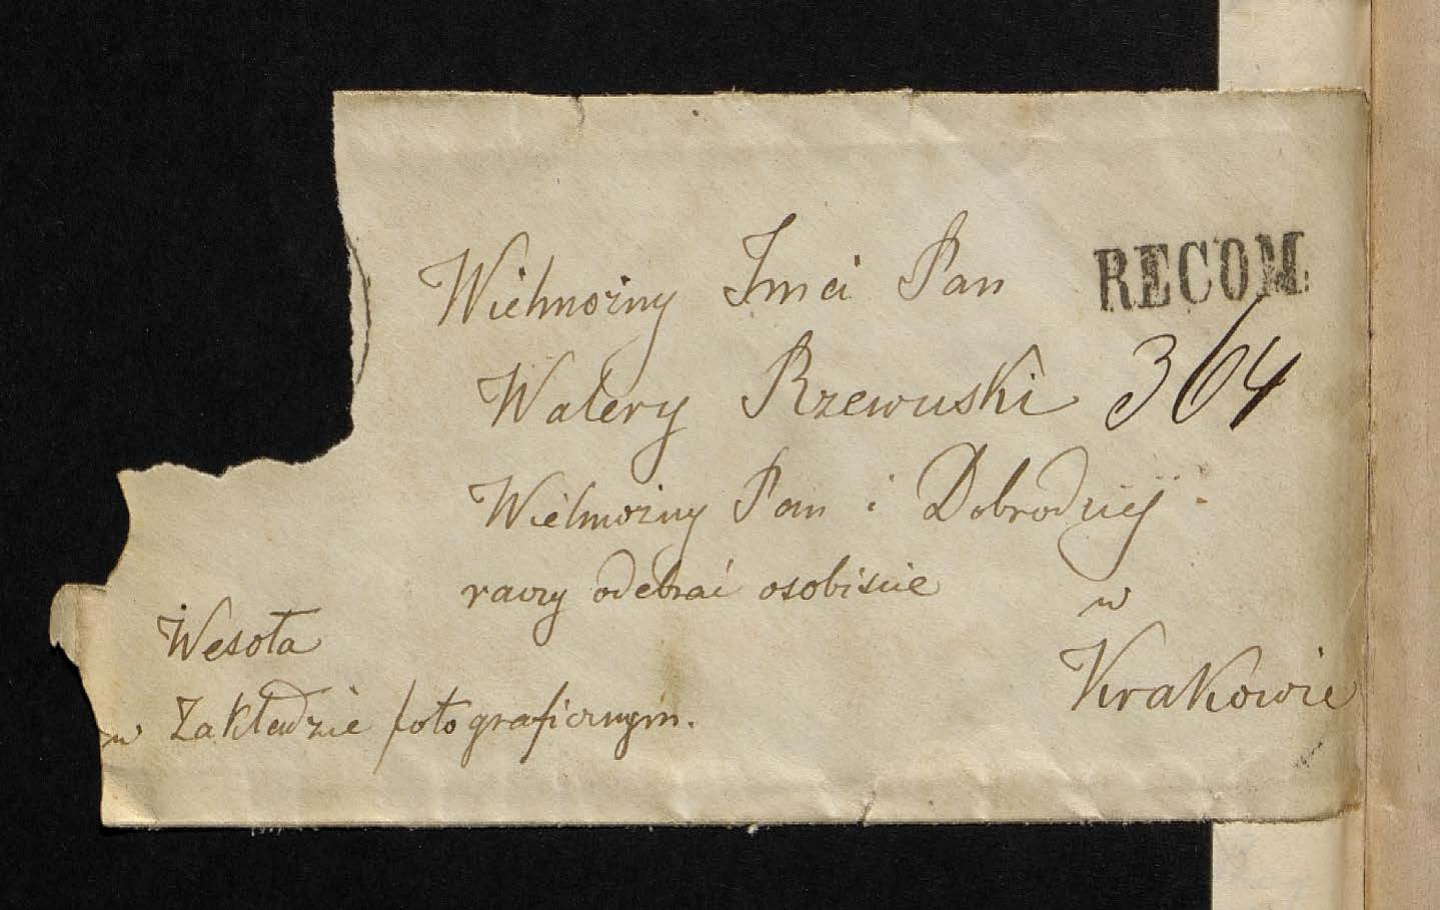 Wielmożny Jmci Pan
RECOM.
Walery Rzewuski 364
Wielmożny Pan i Dobrodziéj
raczy odebrać osobiście
w
Krakowie
Wesoła
w Zakładzie fotograficznym.